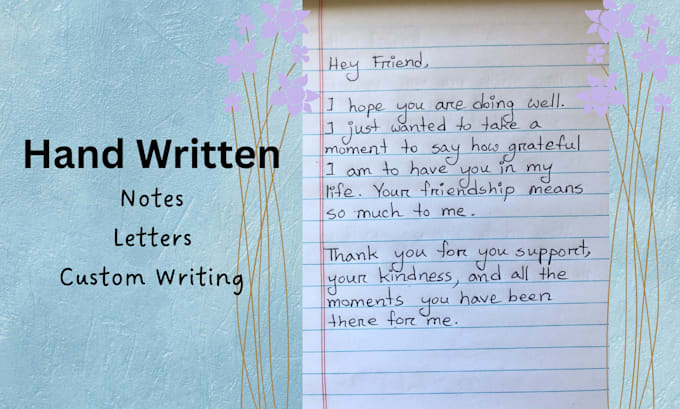 Hand Written
Notes
Letters
Custom Writing
Hey Friend,
I hope you are doing well.
I just wanted to take a
moment to say how grateful
I am to have you in my
life. Your friendship means
so much to me.
Thank you for you support,
your kindness, and all the
moments you have been
there for me.